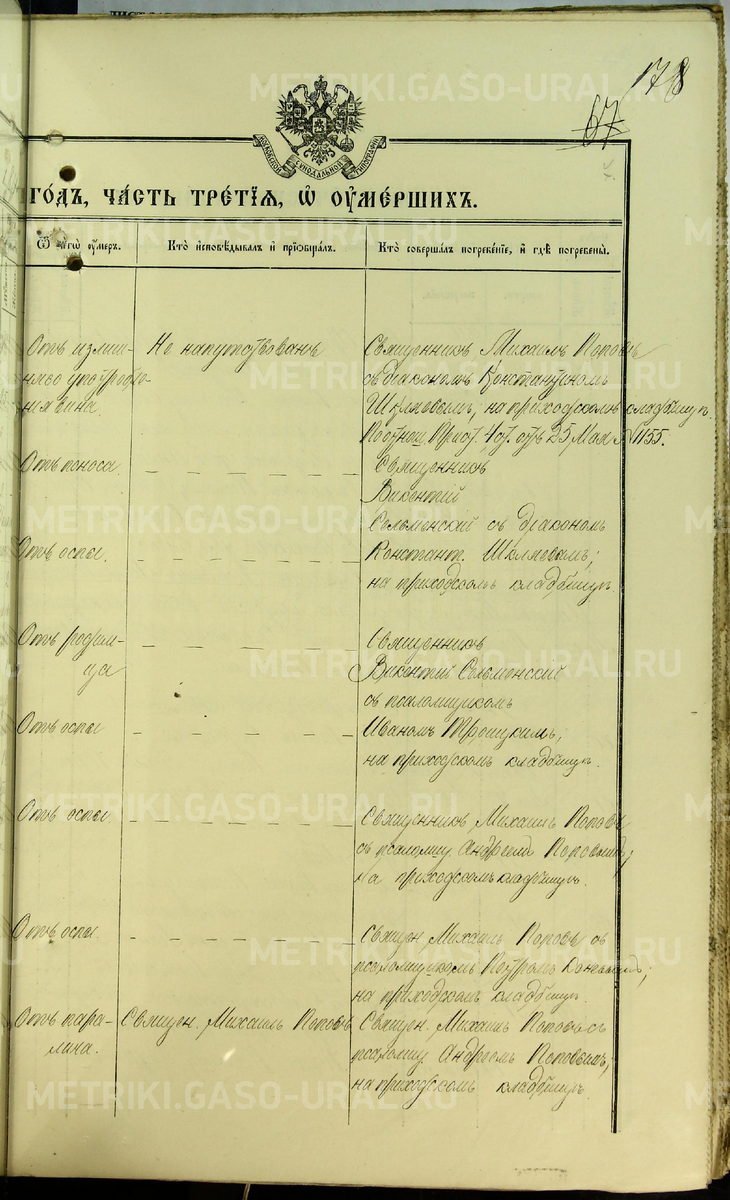 178
67
МОСКОВСКОЙ СѴНОДАЛЬНОЙ ТИПОГРАФІИ
ГО́ДЪ, ЧА́СТЬ ТРЕ́ТІѦ, Ѡ ОУМЕ́РШИХЪ.
Ѿ чегѡ оумеръ.
Кто исповѣдывалъ и пріобщалъ.
Кто совершалъ погребеніе, и гдѣ погребены.
Отъ излиш-
няго употребле-
нія вина.
Не напутствованъ
Священникъ Михаилъ Поповъ
съ діакономъ Константиномъ
на приходскомъ кладбищѣ.
Прист. 4 ст. отъ 25 Мая № 1155.
Отъ поноса.
Священникъ
Викентій
Сельменскій съ діакономъ
Отъ оспы.
Констант.
на приходскомъ кладбищѣ
Отъ родим-
ца
Священникъ
Викентій Сельменскій
съ псаломщикомъ
Отъ оспы
Иваномъ Троицкимъ,
на приходскомъ кладбищѣ.
Отъ оспы
Священникъ Михаилъ Поповъ
съ псаломщ. Андреемъ Поповымъ,
на приходскомъ кладбищѣ.
Отъ оспы.
Священ. Михаилъ Поповъ съ
псаломщикомъ Петромъ
на приходскомъ кладбищѣ.
Отъ пара-
лича.
Священ. Михаилъ Поповъ
Священ. Михаилъ Поповъ съ
псаломщ. Андреемъ Поповымъ,
на приходскомъ кладбищѣ.
METRIKI.GASO-URAL.RU